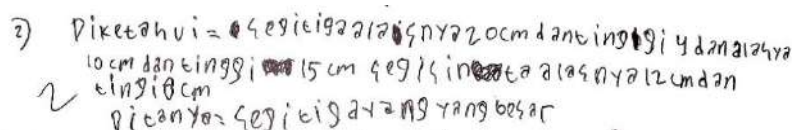 2) Diketahui = segitiga alasnya 20cm dan tinggi y dan alasnya
10 cm dan tinggi 15 cm segi alasnya 12 cm dan
tingi 8cm
Ditanya = segitiga yang yang besar